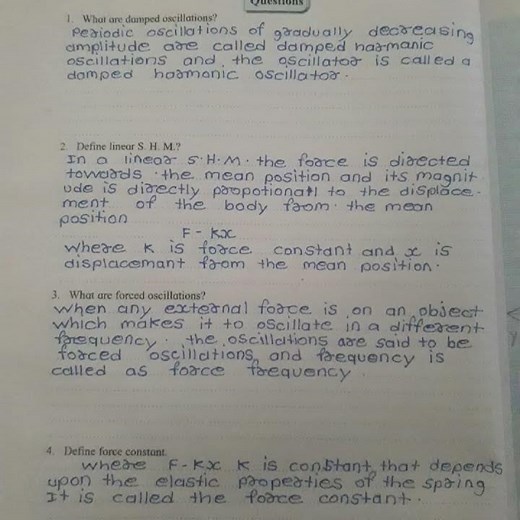 Questions
1. What are damped oscillations?
Periodic oscillations of gradually decreasing
amplitude are called damped harmanic
oscillations and the oscillator is called a
damped harmonic oscillator.
2. Define linear S. H. M.?
In a linear S.H.M. the force is directed
towards the mean position and its magnit
ude is directly propotionatl to the displace-
ment of the body from the mean
position
F - Kx
where K is force constant and x is
displacemant from the mean position.
3. What are forced oscillations?
when any external force is on an object
which makes it to oscillate in a different
frequency. the oscillations are said to be
forced oscillations, and frequency is
called as force frequency
4. Define force constant.
where F-Kx K is constant, that depends
upon the elastic properties of the spring
It is called the force constant.